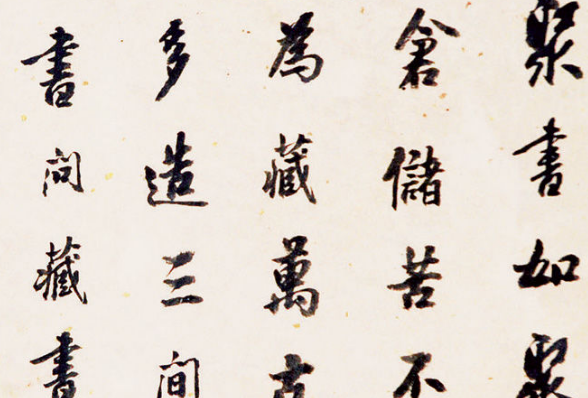 聚書如聚
倉儲苦不
為藏萬古
多造三間
書問藏書